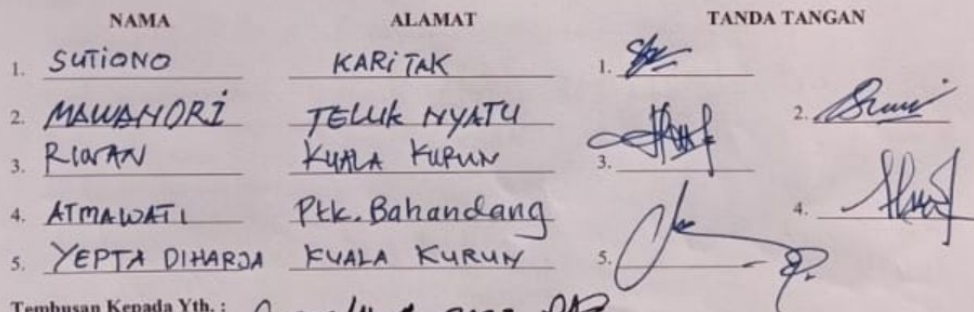 NAMA ALAMAT TANDA TANGAN
1. SUTIONO KARITAK 1.
2. MAWANDRI TELUK NYATU 2.
3. RIWAN KUALA KURUN 3.
4. ATMAWATI Ptk. Bahandang 4.
5. YEPTA DIHARJA KUALA KURUN 5.
Tembusan Kepada Yth. :